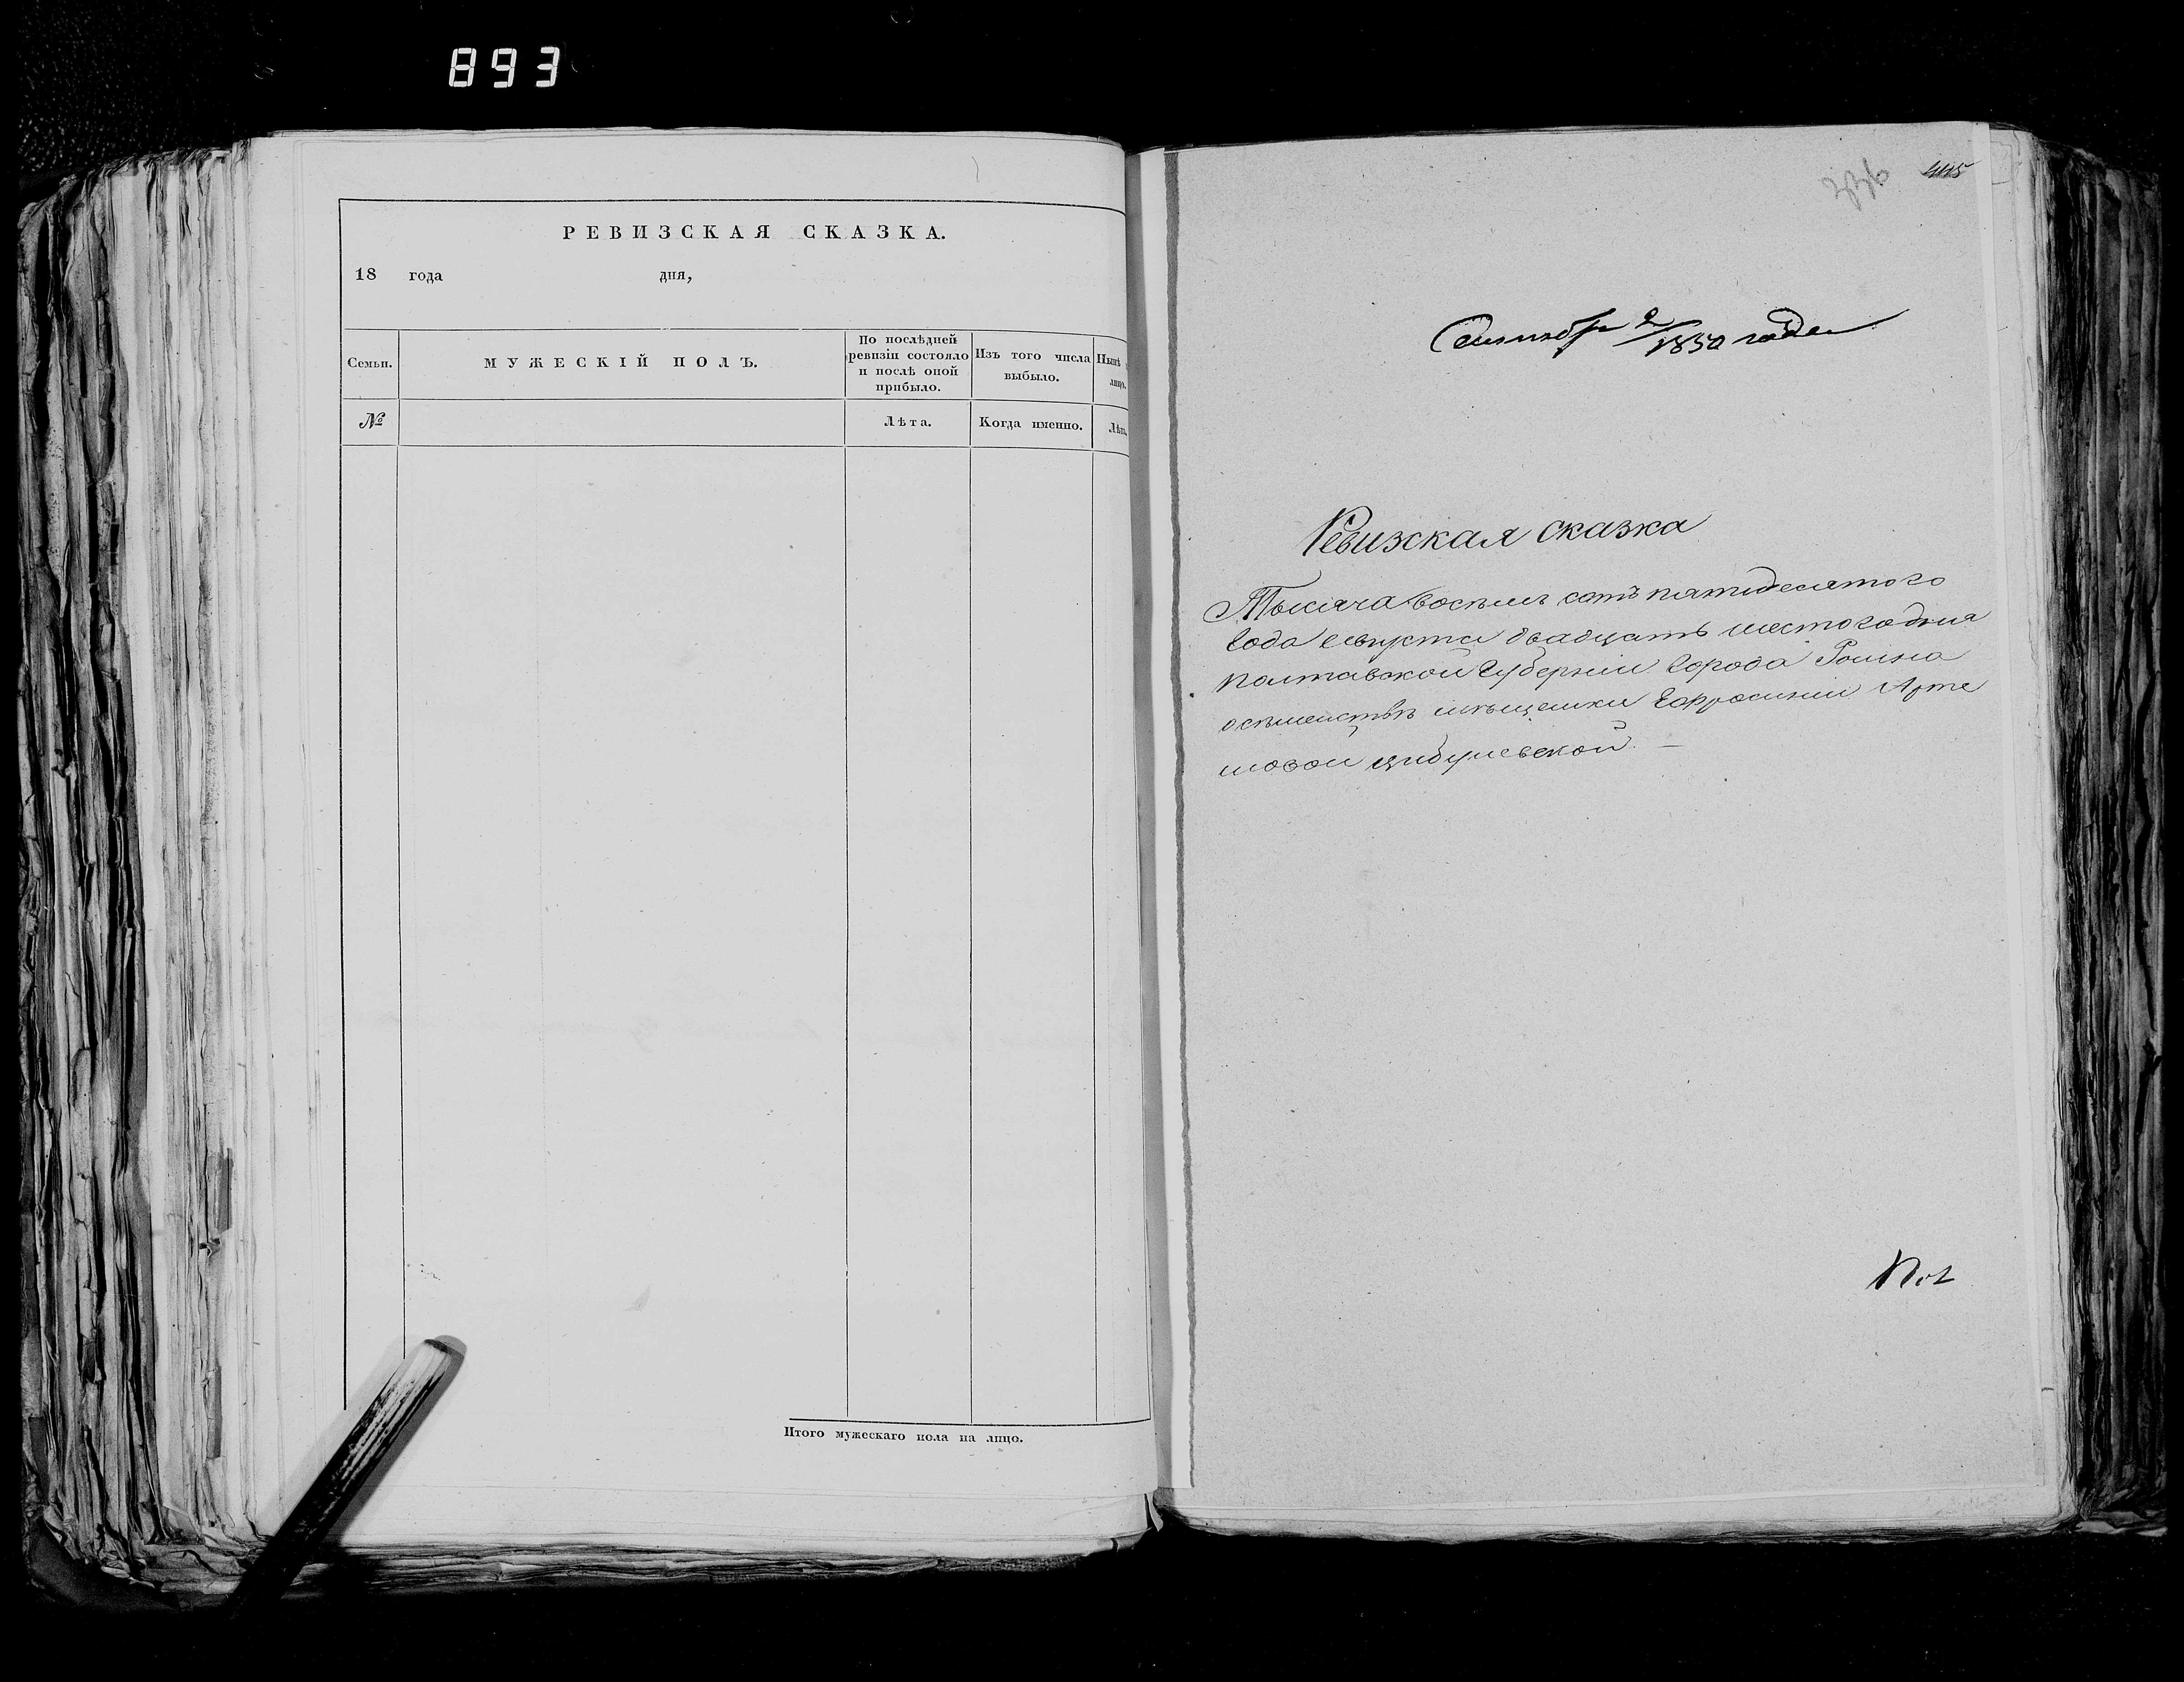 893
РЕВИЗСКАЯ СКАЗКА.
18 года дня,
Семьи.
МУЖЕСКІЙ ПОЛЪ.
По послѣдней
ревизіи состояло
и послѣ оной
прибыло.
Изъ того числа
выбыло.
Нынѣ
лицо.
№
Лѣта.
Когда именно.
Лѣта.
Итого мужескаго пола на лицо.
336 445
Сентября 2/1850 года
Ревизская сказка
Тысяча восемь сотъ пятидесятого
Года Августа двадцать шестого дня
Полтавской Губерніи Города Ромна
осемействѣ мѣщанки Ефросиніи Арте
мовой Цибулевской. —